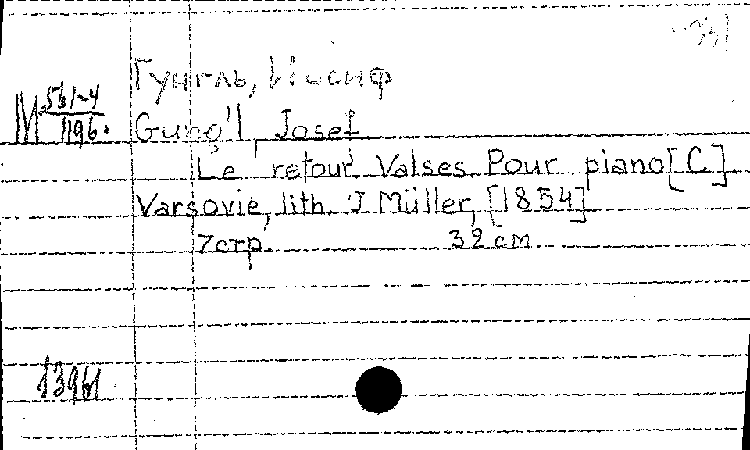 Гунгль, Иосиф
M 551-4
1196.
Gung'l, Josef
Le retour Valses Pour piano [C]
Varsovie, lith J Müller, [1854]
7стр. 32 см
13961